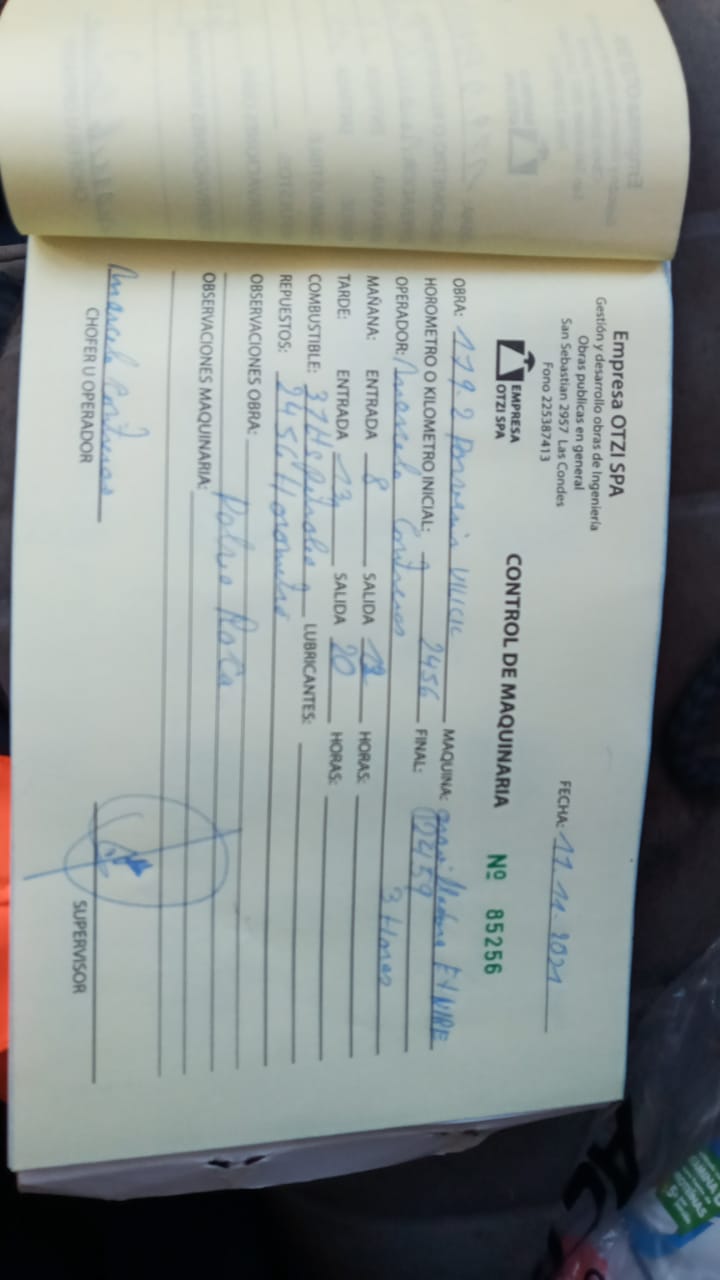 Empresa OTZI SPA
Gestión y desarrollo obras de Ingeniería
Obras publicas en general
San Sebastian 2957 Las Condes
Fono 225387413
EMPRESA
OTZI SPA
FECHA: 11.11.2021
CONTROL DE MAQUINARIA Nº 85256
OBRA: 179.2 Porvenir VILICIC MAQUINA:
HOROMETRO O KILOMETRO INICIAL: 2456 FINAL: 2459
OPERADOR: Marcelo Contreras 3 Horas
MAÑANA: ENTRADA 8 SALIDA 12 HORAS:
TARDE: ENTRADA 13 SALIDA 20 HORAS:
COMBUSTIBLE: Petroleo LUBRICANTES:
REPUESTOS: 2456 Horometro
OBSERVACIONES OBRA:
Roca
OBSERVACIONES MAQUINARIA:
Marcelo Contreras
CHOFER U OPERADOR
SUPERVISOR